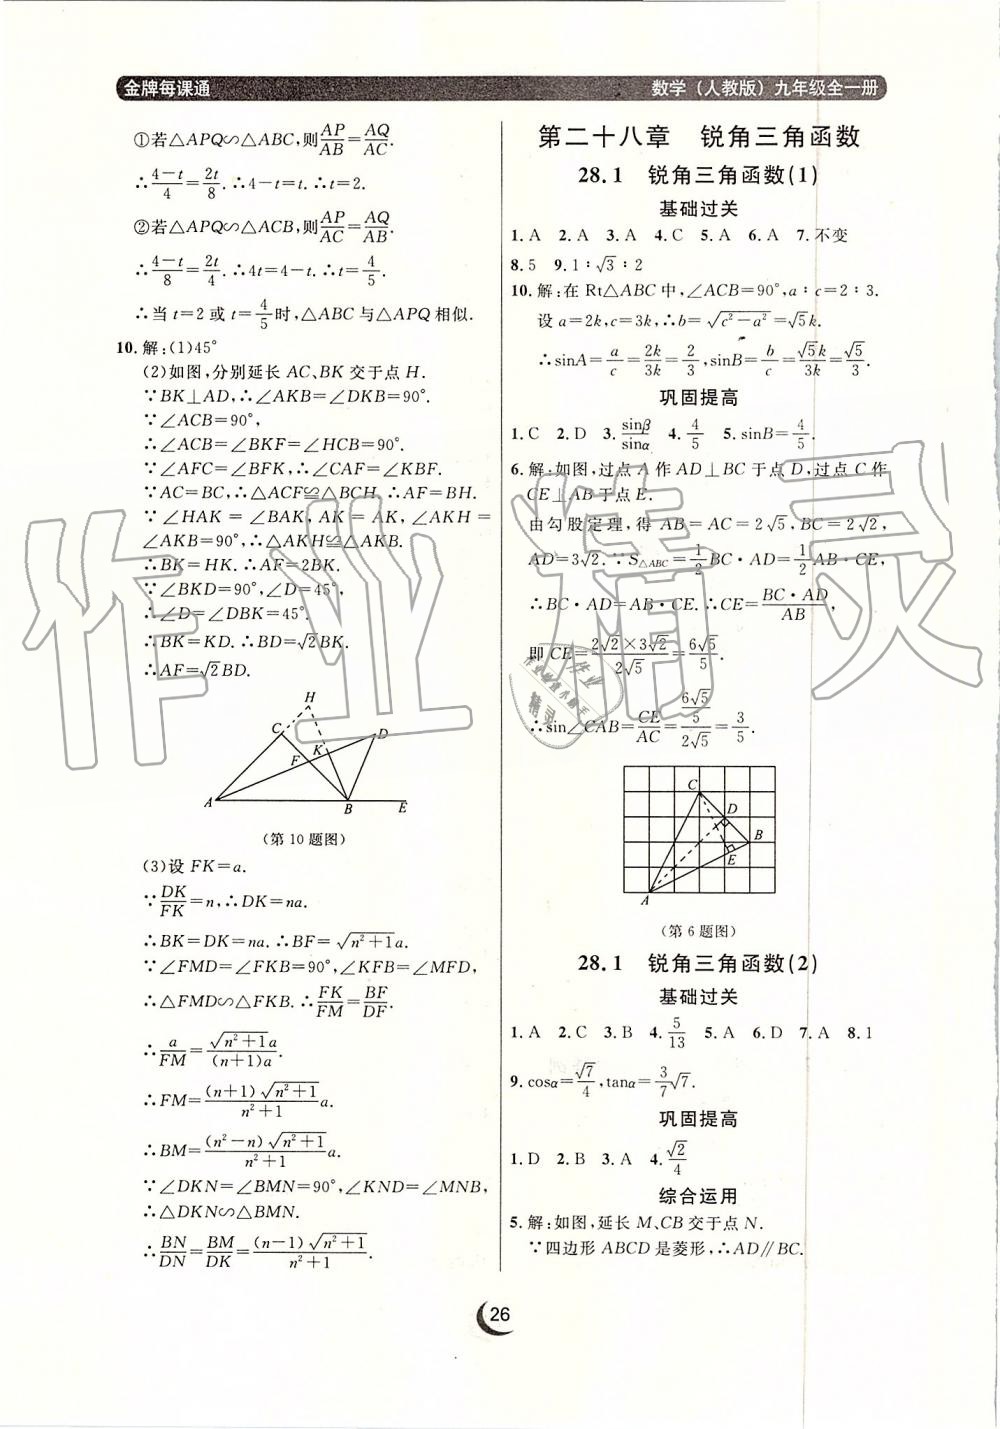 金牌每课通
数学(人教版)九年级全一册
①若△APQ∽△ABC,则AP/AB=AQ/AC.
∴(4-t)/4=2t/8.∴4-t=t.∴t=2.
②若△APQ∽△ACB,则AP/AC=AQ/AB.
∴(4-t)/8=2t/4.∴4t=4-t.∴t=4/5.
∴当t=2或t=4/5时,△ABC与△APQ相似.
10.解:(1)45°
(2)如图,分别延长AC、BK交于点H.
∵BK⊥AD,∴∠AKB=∠DKB=90°.
∵∠ACB=90°,
∴∠ACB=∠BKF=∠HCB=90°.
∵∠AFC=∠BFK,∴∠CAF=∠KBF.
∵AC=BC,∴△ACF≌△BCH.∴AF=BH.
∵∠HAK=∠BAK,AK=AK,∠AKH=
∠AKB=90°,∴△AKH≌△AKB.
∴BK=HK.∴AF=2BK.
∵∠BKD=90°,∠D=45°,
∴∠D=∠DBK=45°.
∴BK=KD.∴BD=√2BK.
∴AF=√2BD.
H
C
K
D
F
A
B
E
(第10题图)
(3)设FK=a.
∵DK/FK=n,∴DK=na.
∴BK=DK=na.∴BF=√(n²+1)a.
∵∠FMD=∠FKB=90°,∠KFB=∠MFD,
∴△FMD∽△FKB.∴FK/FM=BF/DF.
∴a/FM=√(n²+1)a/(n+1)a.
∴FM=(n+1)√(n²+1)/(n²+1)a.
∴BM=(n²-n)√(n²+1)/(n²+1)a.
∵∠DKN=∠BMN=90°,∠KND=∠MNB,
∴△DKN∽△BMN.
∴BN/DN=BM/DK=(n-1)√(n²+1)/(n²+1).
第二十八章 锐角三角函数
28.1 锐角三角函数(1)
基础过关
1.A 2.A 3.A 4.C 5.A 6.A 7.不变
8.5 9.1∶√3∶2
10.解:在Rt△ABC中,∠ACB=90°,a∶c=2∶3.
设a=2k,c=3k,∴b=√(c²-a²)=√5k.
∴sinA=a/c=2k/3k=2/3,sinB=b/c=√5k/3k=√5/3.
巩固提高
1.C 2.D 3.sinβ/sinα 4.4/5 5.sinB=4/5.
6.解:如图,过点A作AD⊥BC于点D,过点C作
CE⊥AB于点E.
由勾股定理,得AB=AC=2√5,BC=2√2,
AD=3√2.∵S△ABC=1/2BC·AD=1/2AB·CE,
∴BC·AD=AB·CE.∴CE=BC·AD/AB,
即CE=2√2×3√2/2√5=6√5/5.
∴sin∠CAB=CE/AC=(6√5/5)/2√5=3/5.
C
D
B
E
A
(第6题图)
28.1 锐角三角函数(2)
基础过关
1.A 2.C 3.B 4.5/13 5.A 6.D 7.A 8.1
9.cosα=√7/4,tanα=3/7√7.
巩固提高
1.D 2.B 3.A 4.√2/4
综合运用
5.解:如图,延长M、CB交于点N.
∵四边形ABCD是菱形,∴AD∥BC.
26
作业精灵